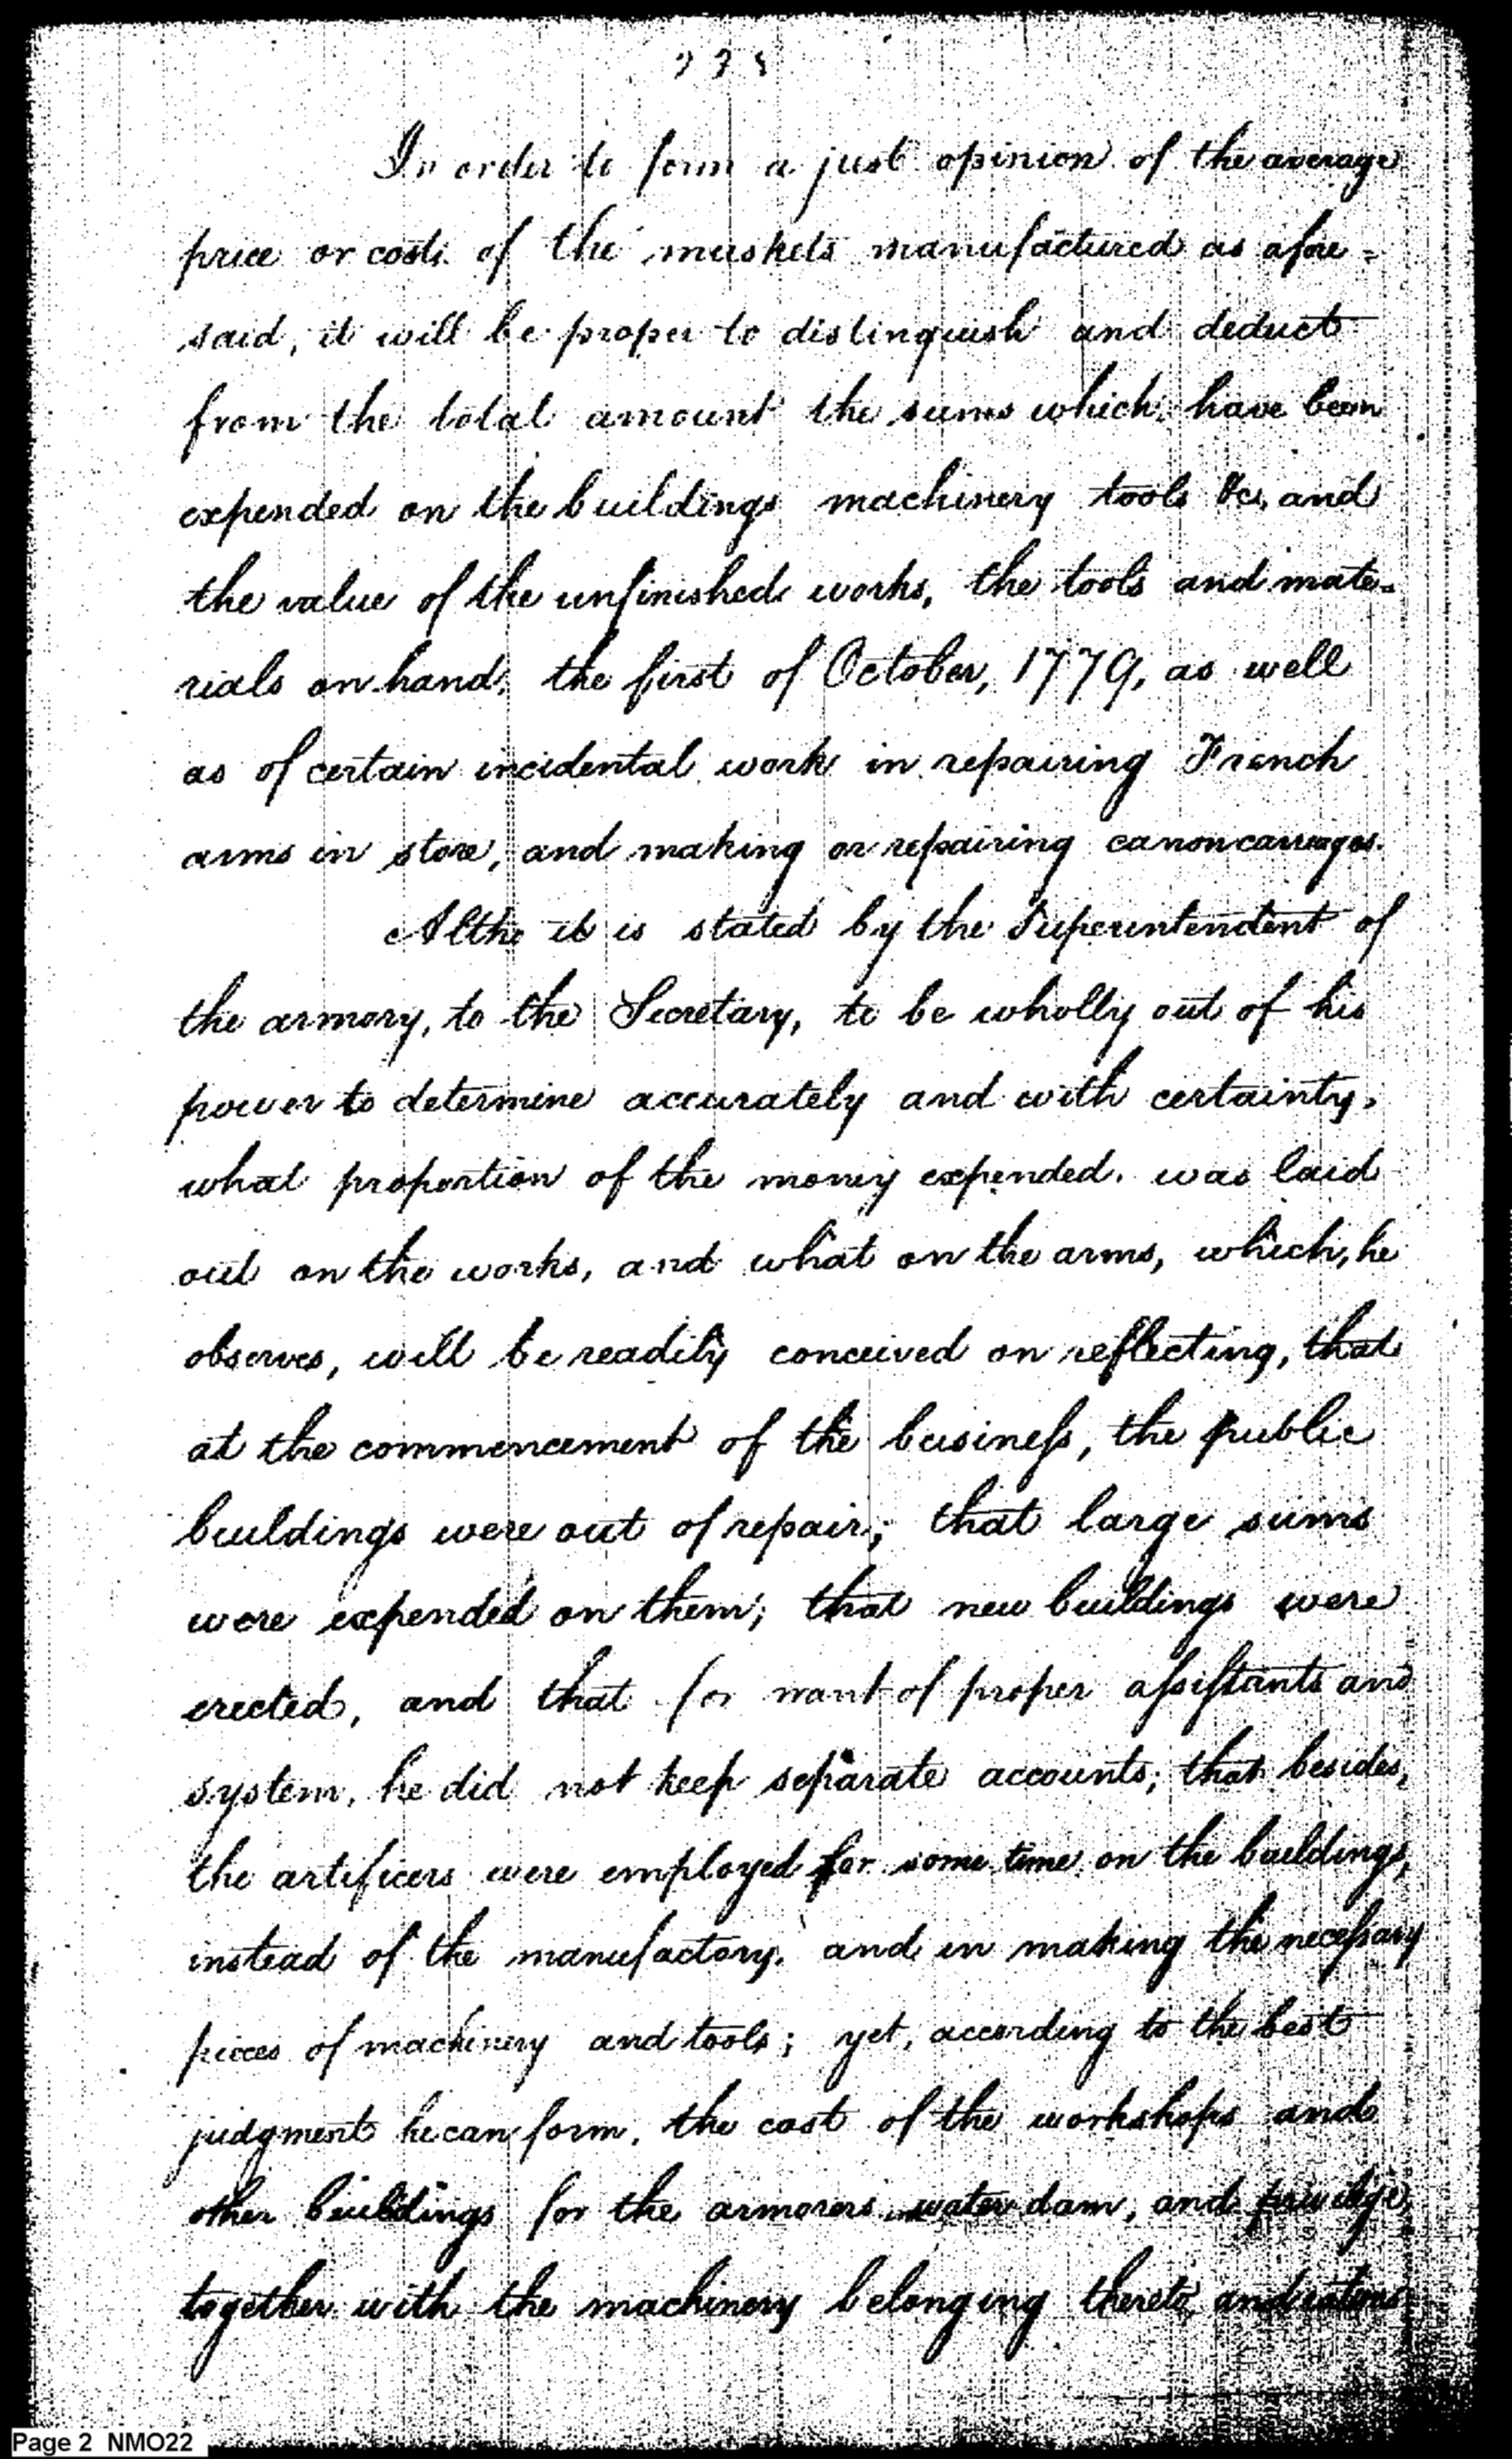 In order to form a just opinion of the average
price or costs of the muskets manufactured as afore=
said, it will be proper to distinguish and deduct
from the total amount the sums which have been
expended on the buildings machinery tools &c, and
the value of the unfinished works, the tools and mate-
rials on hand, the first of October, 1779, as well
as of certain incidental work in repairing French
arms in store, and making or repairing canon carriages.
Altho it is stated by the Superintendent of
the armory, to the Secretary, to be wholly out of his
power to determine accurately and with certainty,
what proportion of the money expended. was laid
out on the works, and what on the arms, which, he
observes, will be readily conceived on reflecting, that
at the commencement of the business, the public
buildings were out of repair; that large sums
were expended on them; that new buildings were
erected, and that for want of proper assistants and
system, he did not keep separate accounts; that besides,
the artificers were employed for some time on the buildings,
instead of the manufactory, and in making the necessary
pieces of machinery and tools; yet, according to the best
judgment he can form, the cost of the workshops and
other buildings for the armorers water dam, and privilege,
together with the machinery belonging thereto,
Page 2 NMO22